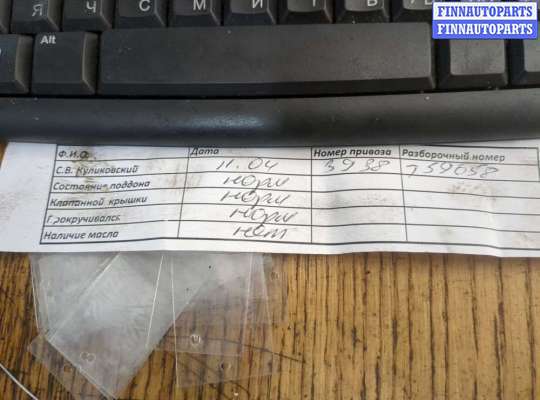 FINNAUTOPARTS
FINNAUTOPARTS
FINNAUTOPARTS
Я Ч С М И Т Ь
Alt
Ф.И.О. Дата Номер привоза Разборочный номер
С.В. Куликовский 11.04 3938 759658
Состояние поддона норм
Клапанной крышки норм
Прокручивалсь норм
Наличие масла нет